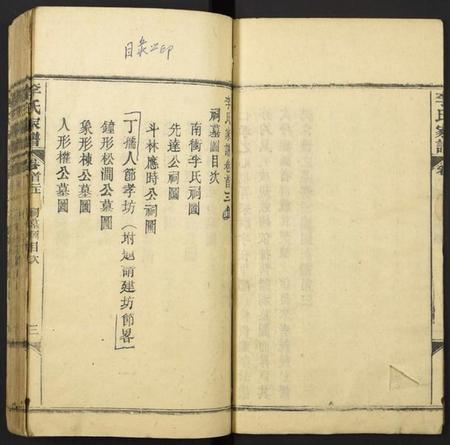 目彔之印
李氏家譜卷首三
祠墓圖目次
南衝李氏祠圖
先達公祠圖
斗林應時公祠圖
丁孺人節孝坊（坿題請建坊節畧）
鐘形松澗公墓圖
象形棟公墓圖
人形權公墓圖
李氏家譜
卷首三
祠墓圖目次
三
李氏家譜
卷